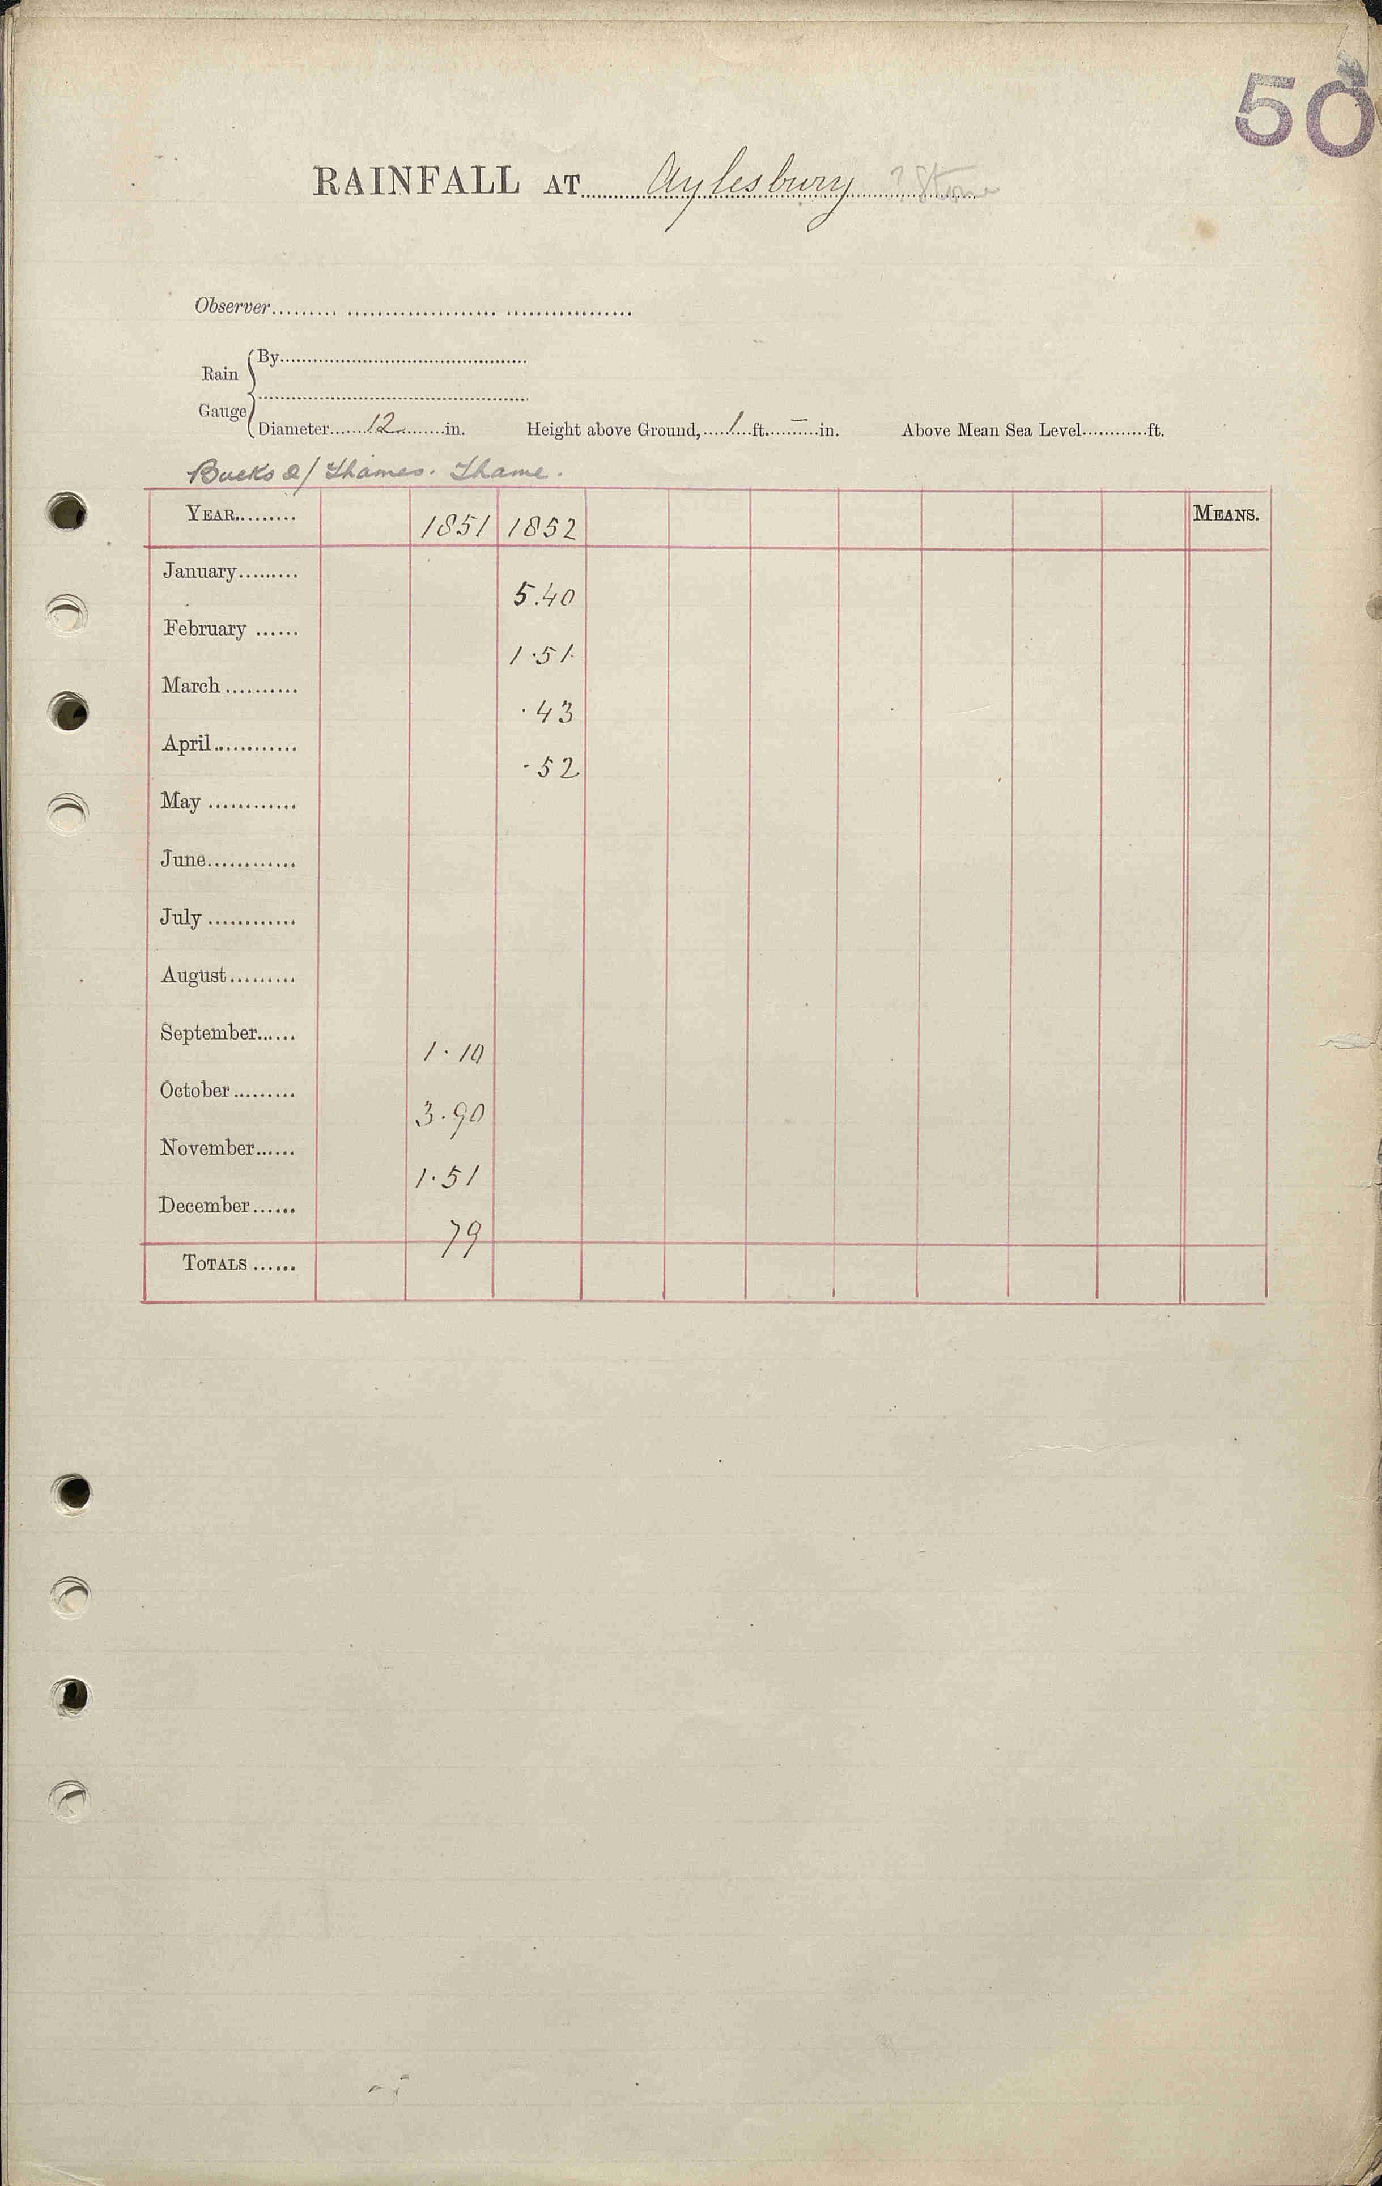 50
RAINFALL AT Aylesbury ? Stone
Observer
Rain Gauge { By
Diameter 12 in. Height above Ground, 1 ft. – in. Above Mean Sea Level ft.
Bucks a/ Thames. Thame.
YEAR 1851 1852 MEANS.
January 5.40
February 1.51
March .43
April .52
May
June
July
August
September 1.10
October 3.90
November 1.51
December 79
TOTALS